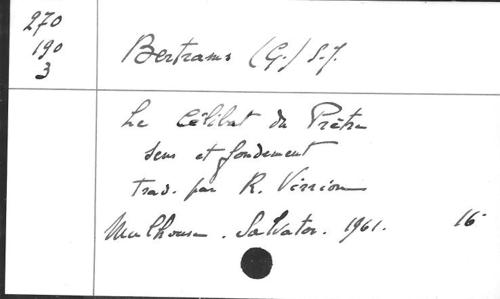 270
190
3
Bertrams (G.) S.J.
Le Célibat du Prêtre
sens et fondement
trad. par R. Virrion
Mulhouse. Salvator. 1961. 16°